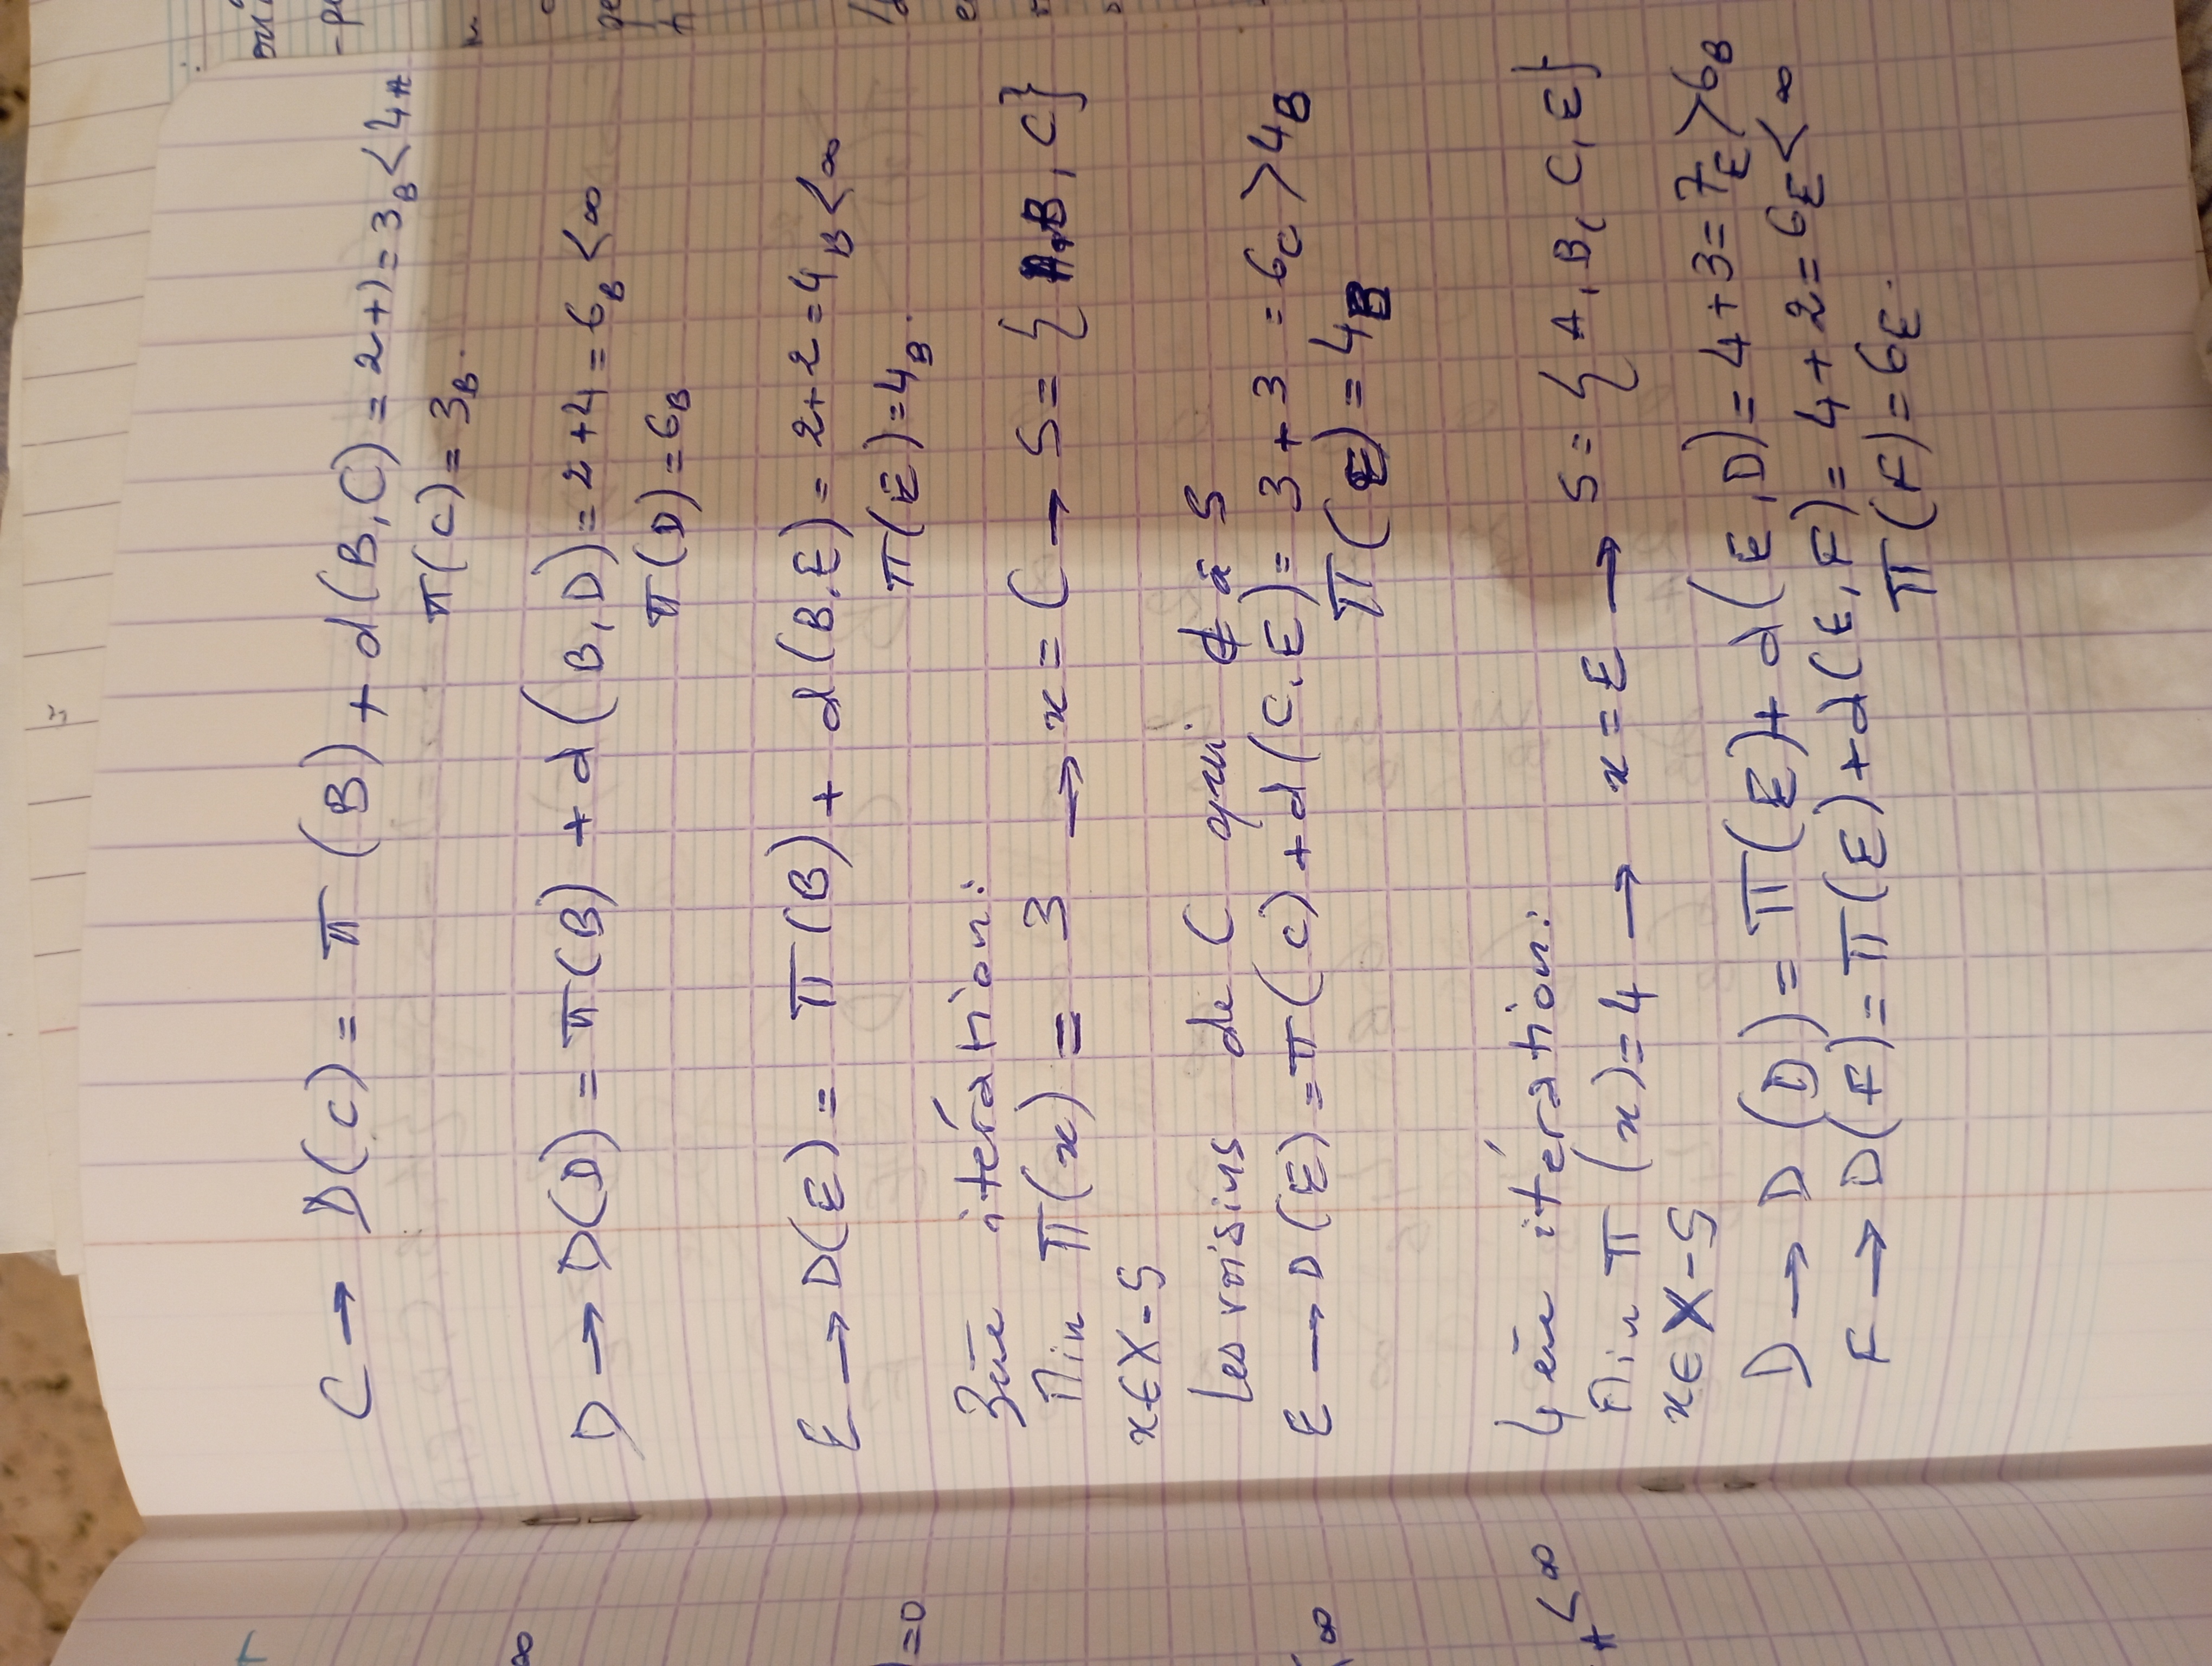 C → D(C) = π(B) + d(B,C) = 2+1 = 3B < 4A
π(C) = 3B.
D → D(D) = π(B) + d(B,D) = 2+4 = 6B < ∞
π(D) = 6B
E → D(E) = π(B) + d(B,E) = 2+2 = 4B < ∞
π(E) = 4B.
3ème itération:
Min π(x) = 3 → x = C → S = {A,B, C}
x∈X-S
Les voisins de C qui ∉ à S
E → D(E) = π(C) + d(C,E) = 3+3 = 6C > 4B
π(E) = 4B
4ème itération:
Min π(x) = 4 → x = E → S = {A, B, C, E}
x∈X-S
D → D(D) = π(E) + d(E,D) = 4+3 = 7E > 6B
F → D(F) = π(E) + d(E,F) = 4+2 = 6E < ∞
π(F) = 6E.
∞
)=0
∞
A < ∞